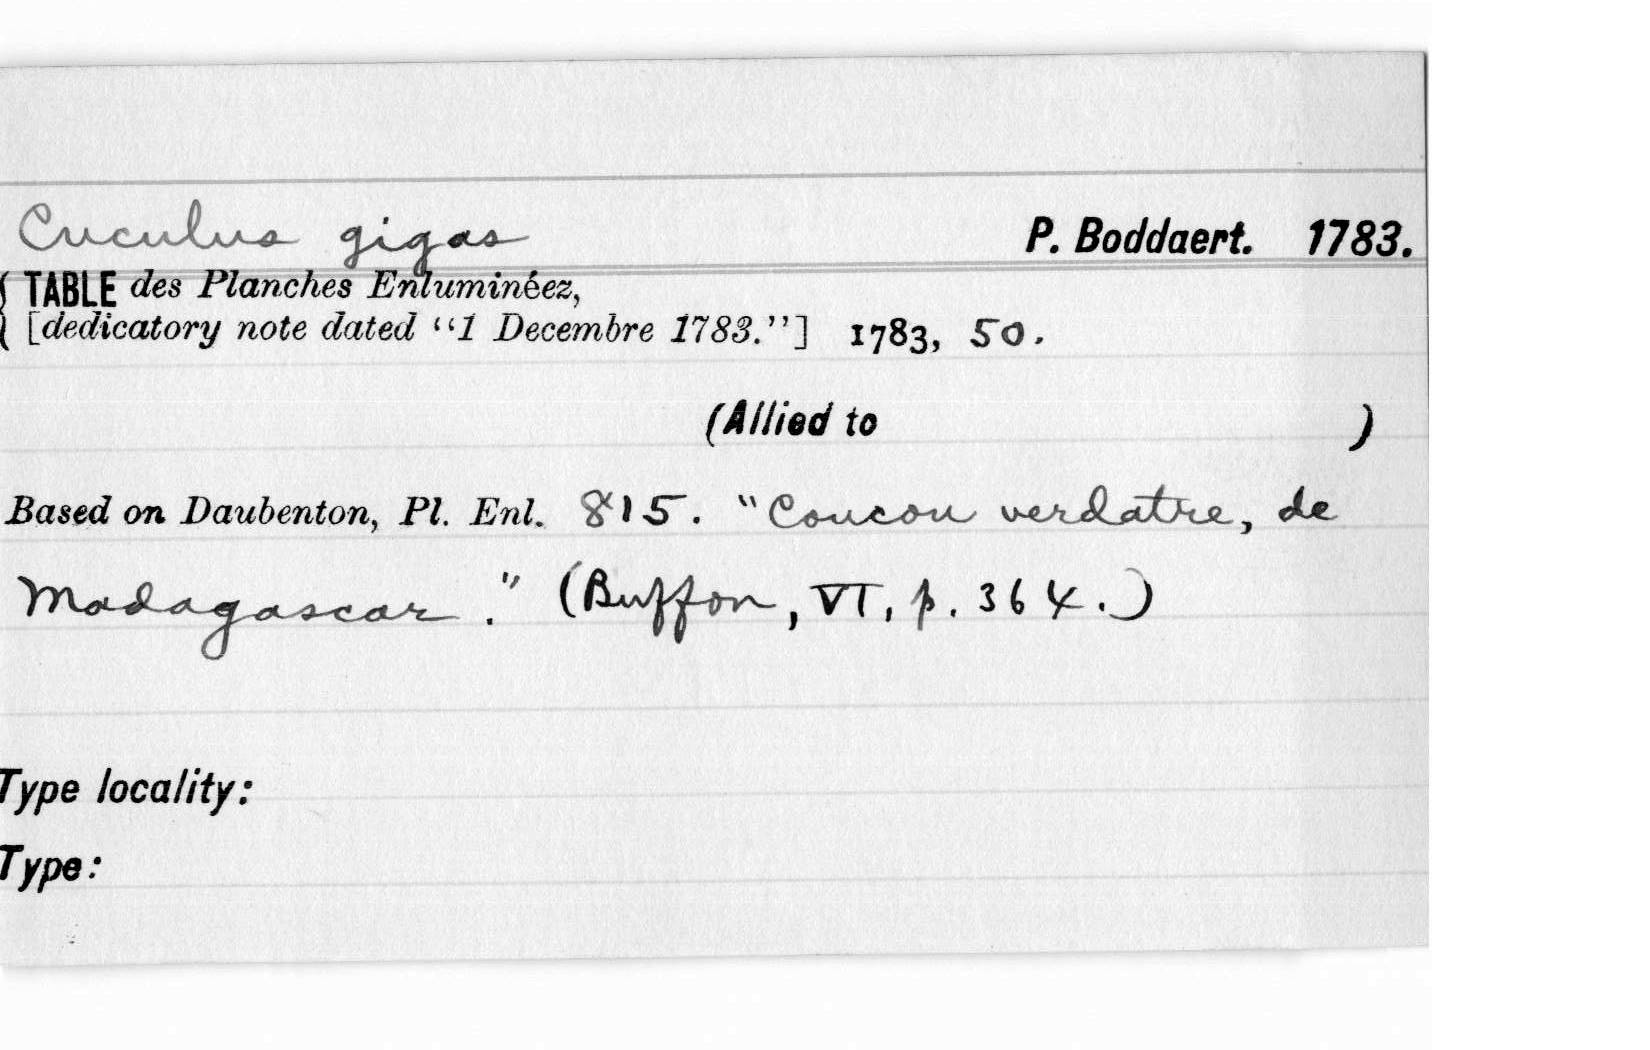 Cuculus gigas P. Boddaert. 1783.
TABLE des Planches Enluminéez,
[dedicatory note dated “1 Decembre 1783.”] 1783, 50.
(Allied to )
Based on Daubenton, Pl. Enl. 815. "Coucou verdatre, de
Madagascar." (Buffon, VI, p. 364.)
Type locality:
Type: